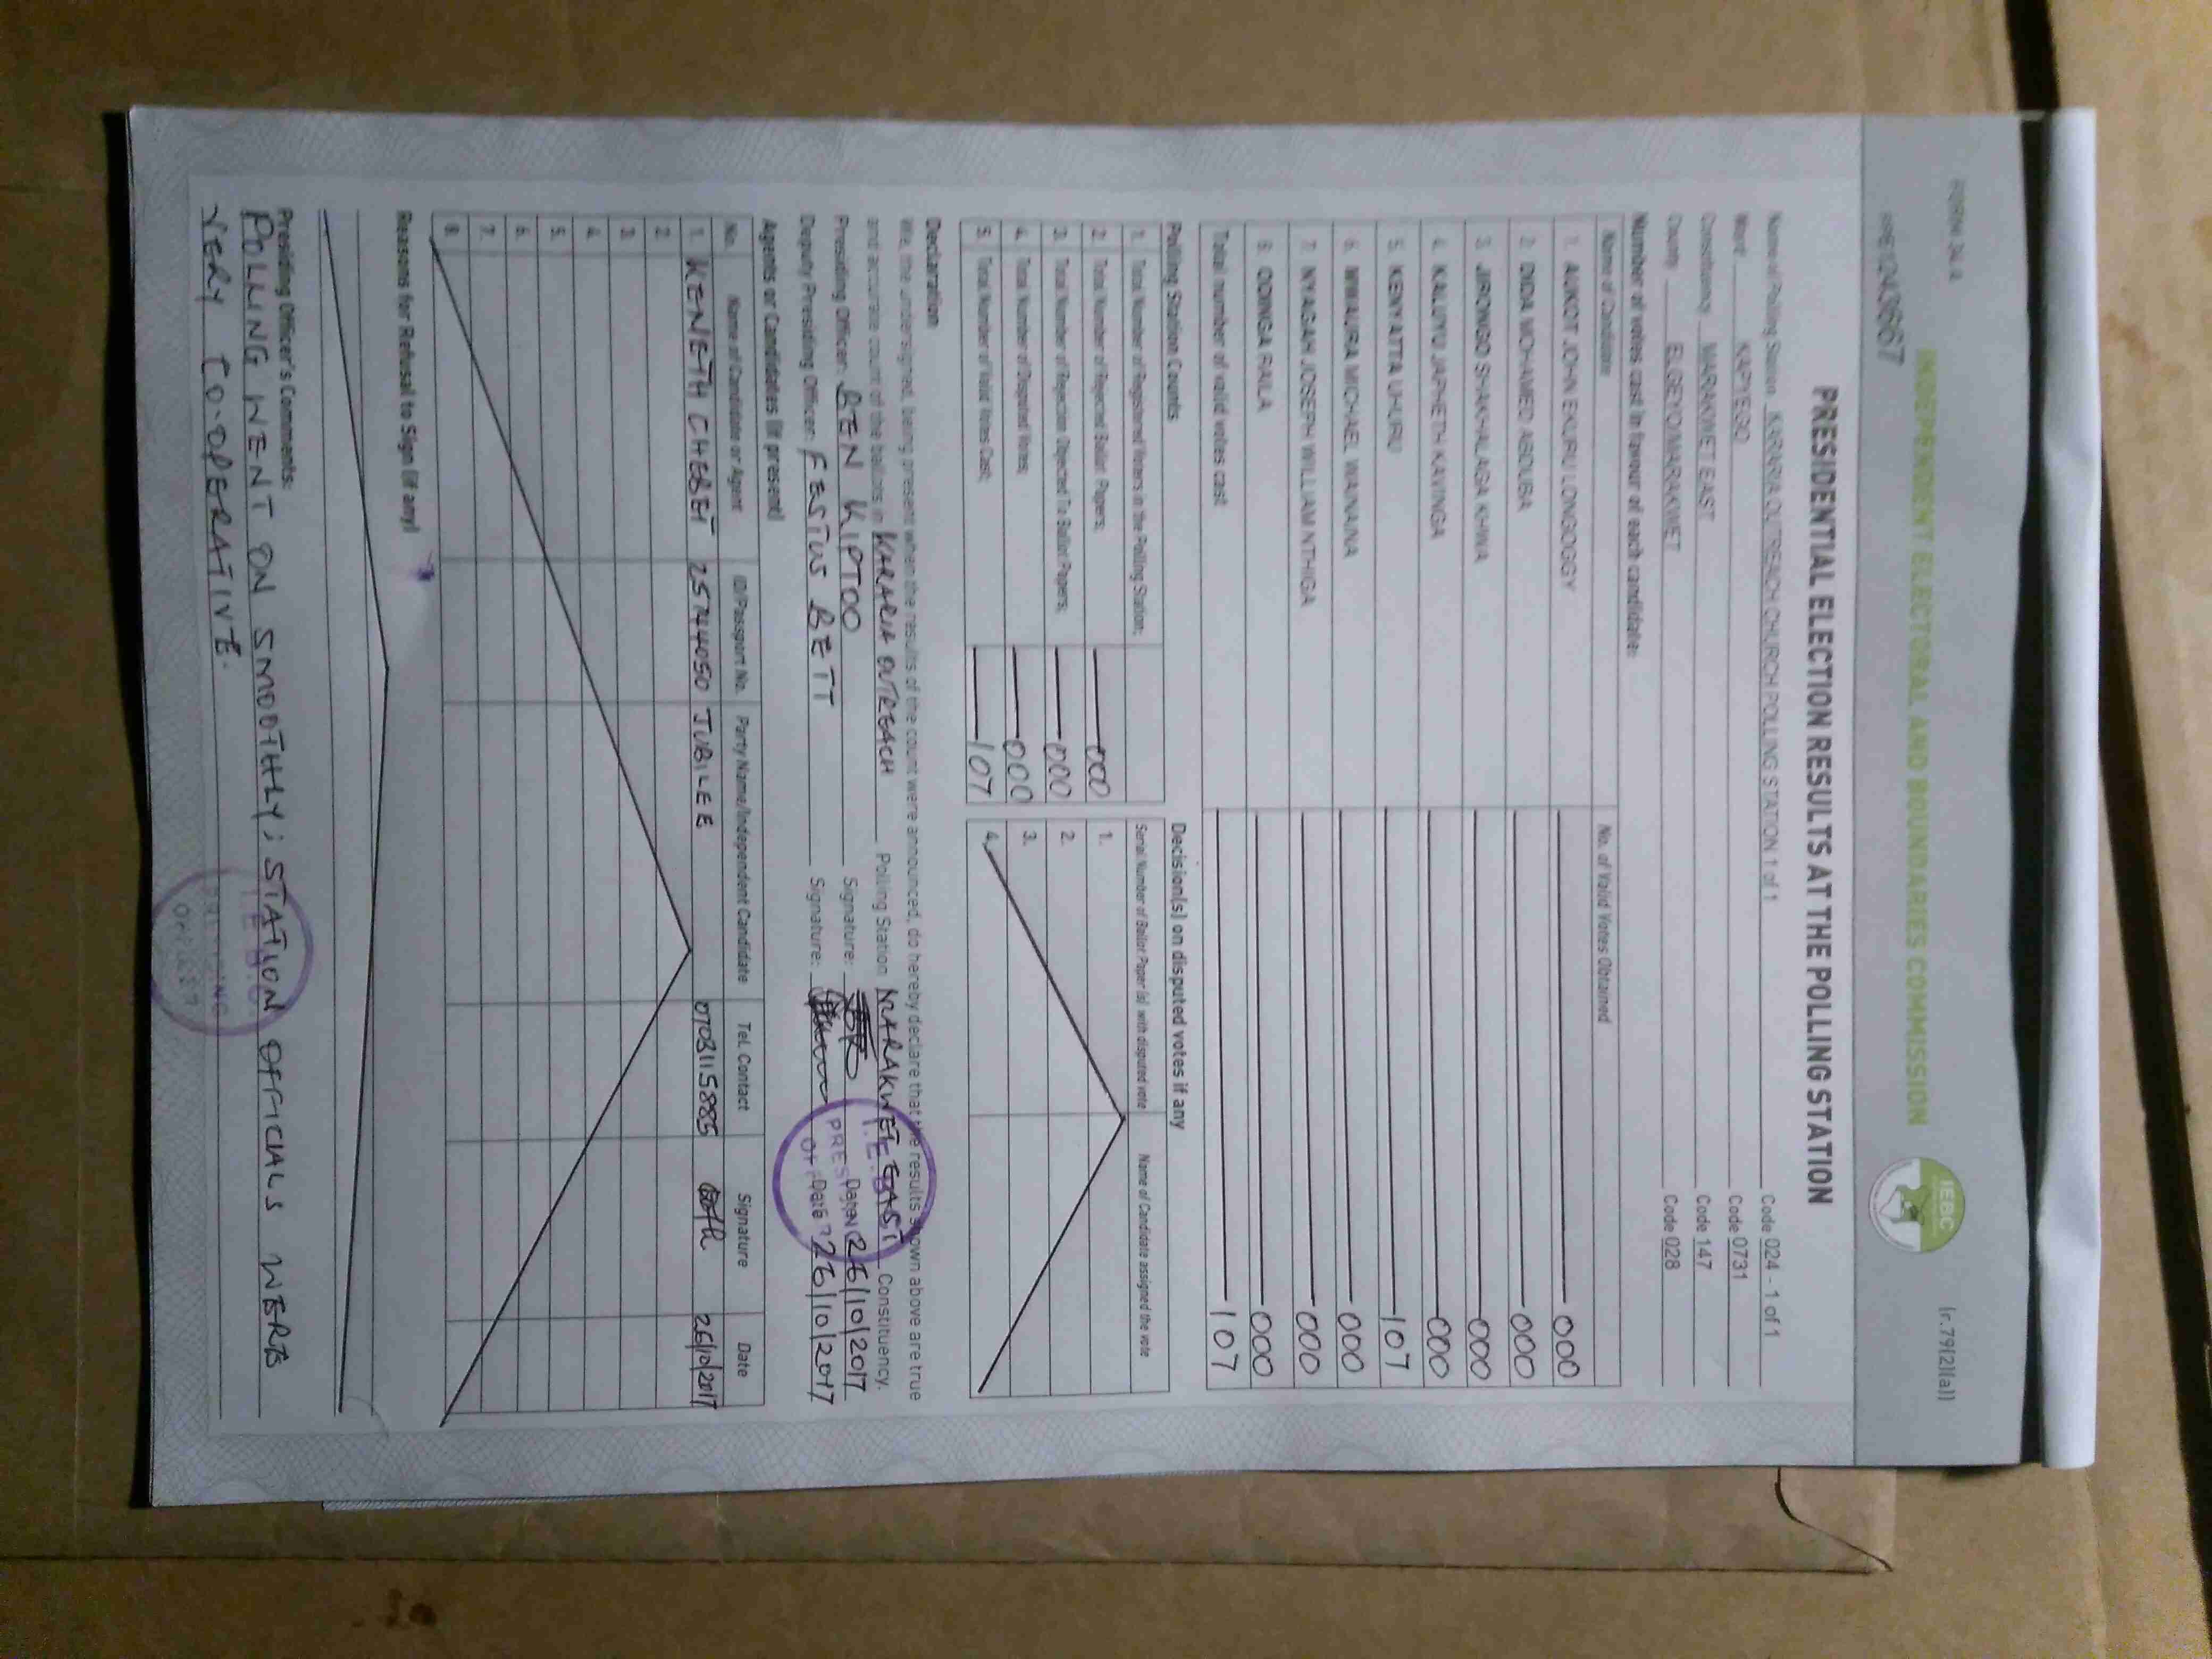 FORM 34 A
(r.79(2)(a))
INDEPENDENT ELECTORAL AND BOUNDARIES COMMISSION
IEBC
PRESIDENTIAL ELECTION RESULTS AT THE POLLING STATION
Name of Polling Station KARARIA OUTREACH CHURCH POLLING STATION 1 of 1 Code 024 - 1 of 1
Ward KAPYEGO Code 0731
Constituency MARAKWET EAST Code 147
County ELGEYO/MARAKWET Code 028
Number of votes cast in favour of each candidate:
Name of Candidate No. of Valid Votes Obtained
1. AUKOT JOHN EKURU LONGOGGY 000
2. DIDA MOHAMED ABDUBA 000
3. JIRONGO SHAKHALAGA KHWA 000
4. KALUYU JAPHETH KAVINGA 000
5. KENYATTA UHURU 107
6. MWAURA MICHAEL WAINAINA 000
7. NYAGAH JOSEPH WILLIAM NTHIGA 000
8. ODINGA RAILA 000
Total number of valid votes cast 107
Polling Station Counts
1. Total Number of Registered Voters in the Polling Station;
2. Total Number of Rejected Ballot Papers; 000
3. Total Number of Rejection Objected To Ballot Papers; 000
4. Total Number of Disputed Votes; 000
5. Total Number of Valid Votes Cast; 107
Decision(s) on disputed votes if any
Serial Number of Ballot Paper (s) with disputed vote Name of Candidate assigned the vote
1.
2.
3.
4.
Declaration
We, the undersigned, being present when the results of the count were announced, do hereby declare that the results shown above are true
and accurate count of the ballots in KARARIA OUTREACH Polling Station MARAKWET EAST Constituency.
Presiding Officer: BEN KIPTOO Signature: Date: 26/10/2017
Deputy Presiding Officer: FESTUS BETT Signature: Date: 26/10/2017
Agents or Candidates (if present)
No. Name of Candidate or Agent ID/Passport No. Party Name/Independent Candidate Tel. Contact Signature Date
1. KENETH CHEBET 25744050 JUBILEE 0703115885 26/10/2017
2.
3.
4.
5.
6.
7.
8.
Reasons for Refusal to Sign (if any)
Presiding Officer's Comments:
POLLING WENT ON SMOOTHLY; STATION OFFICIALS WERE
VERY CO-OPERATIVE.